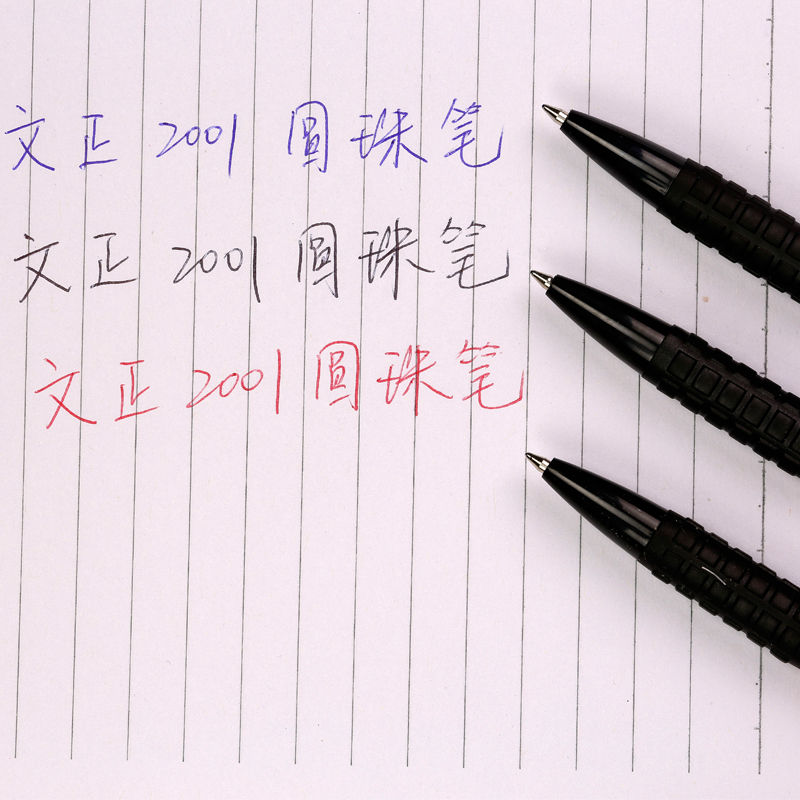 文正 2001 圆珠笔
文正 2001 圆珠笔
文正 2001 圆珠笔